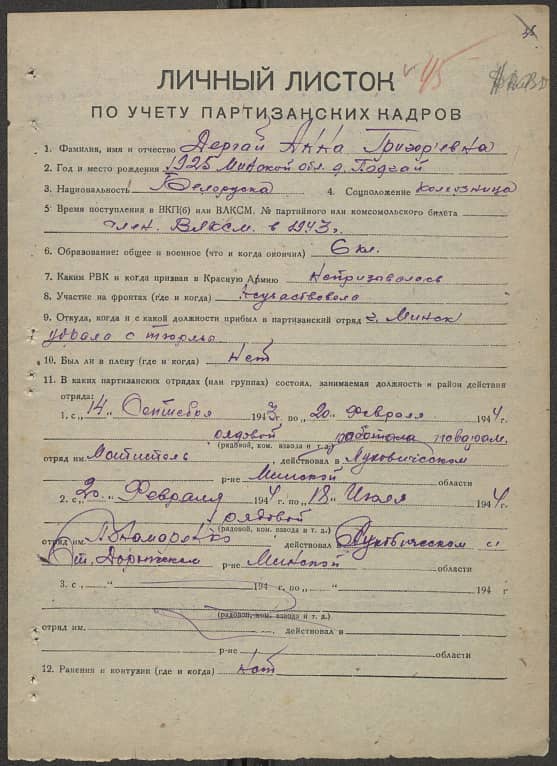 45
ЛИЧНЫЙ ЛИСТОК
ПО УЧЕТУ ПАРТИЗАНСКИХ КАДРОВ
1. Фамилия, имя и отчество Дергай Анна Григорьевна
2. Год и место рождения 1925 Минской обл. д. Подгай
3. Национальность Белоруска 4. Соцположение колхозница
5. Время поступления в ВКП(б) или ВЛКСМ, № партийного или комсомольского билета
член. ВЛКСМ. в 1943 г.
6. Образование: общее и военное (что и когда окончил) 6 кл.
7. Каким РВК и когда призван в Красную Армию непризовалась
8. Участие на фронтах (где и когда) неучаствовала
9. Откуда, когда и с какой должности прибыл в партизанский отряд г. Минск
убрала с тюрмы
10. Был ли в плену (где и когда) нет
11. В каких партизанских отрядах (или группах) состоял, занимаемая должность и район действия
отряда:
1. с „14" Сентебря 1943 г. по „20" Февраля 1944 г.
рядовой работала поваром.
(рядовой, ком. взвода и т. д.)
отряд им. , действовал в
р-не Минской области
2. с „20" Февраля 1944 г. по „18" Июля 1944
рядовой
(рядовой, ком. взвода и т. д.)
отряд им. Пономаренко действовал и
Ст. Дорожском р-не Минской области
3. с „ " 194 г. по „ " 194 г.
(рядовой, ком. взвода и т. д.)
отряд им. действовал в
р-не области
12. Ранения и контузии (где и когда) нет